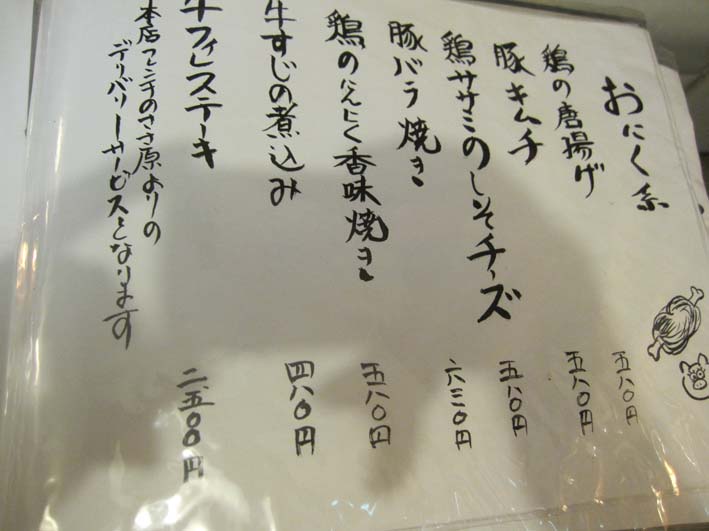 おにく系
鶏の唐揚げ 五八〇円
豚キムチ 五八〇円
鶏ササミのしそチーズ 五八〇円
豚バラ焼き 六三〇円
鶏のにんにく香味焼き 五八〇円
牛すじの煮込み 四八〇円
牛フィレステーキ 二.五〇〇円
本店フレンチのささ原よりの
デリバリーサービスとなります